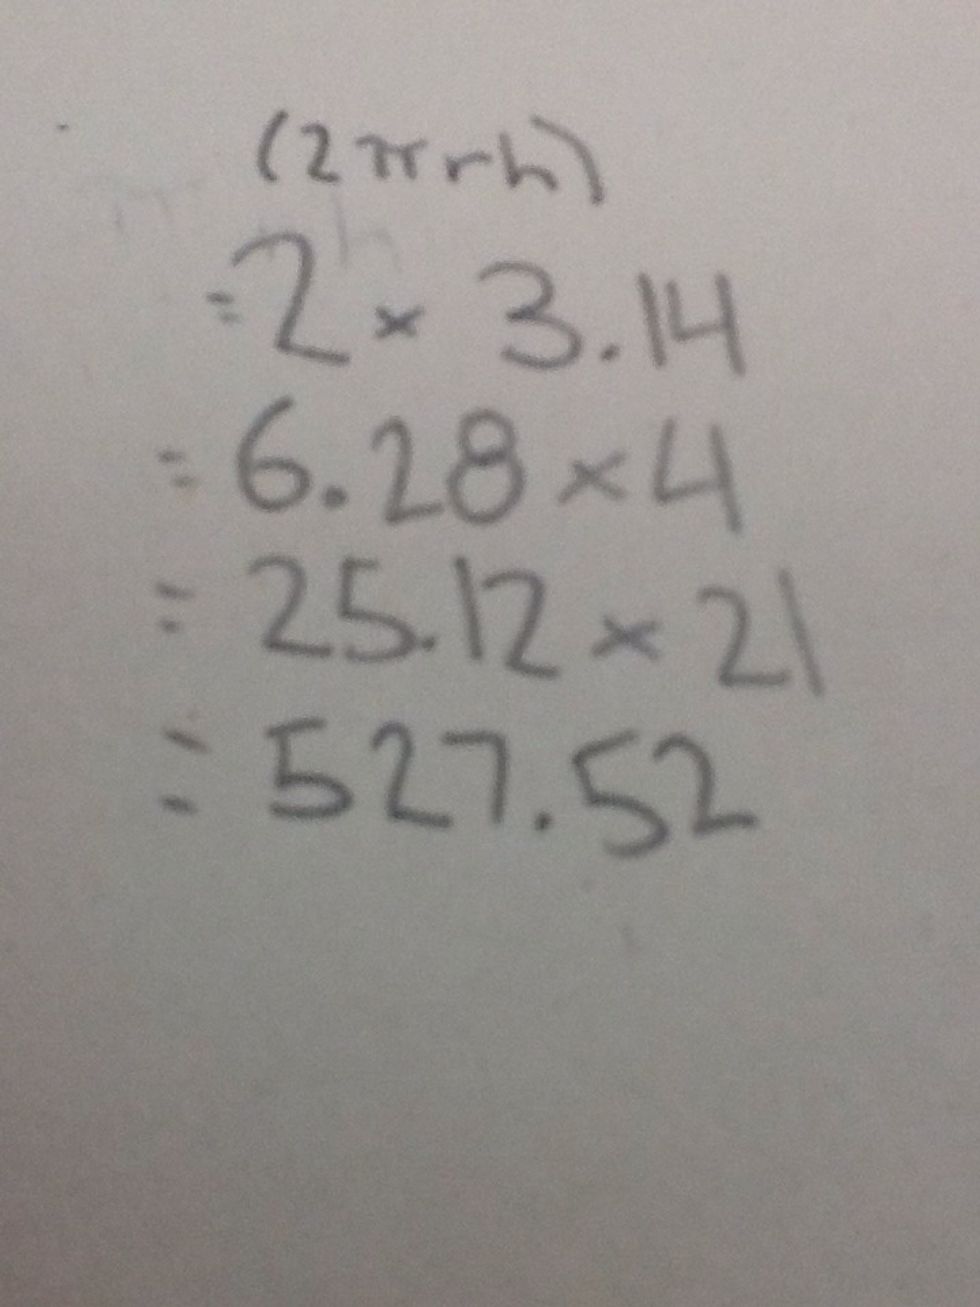 (2πrh)
=2×3.14
=6.28×4
=25.12×21
=527.52